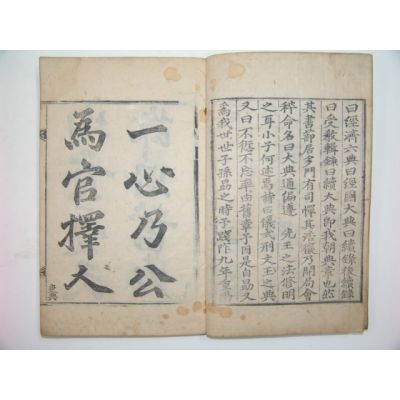 曰經濟六典曰經國大典曰續錄後續錄
曰受敎輯錄曰續大典卽我朝典章也然
其書節居多門有司憚其浩穰乃開局會
稡命名曰大典通編遵 先王之法修明
之耳小子何述焉詩曰儀式刑文王之典
又曰不愆不忘率由舊章予因是自勗又
爲我世世子孫勗之時予踐阼九年重
一心乃公
爲官擇人
吏典